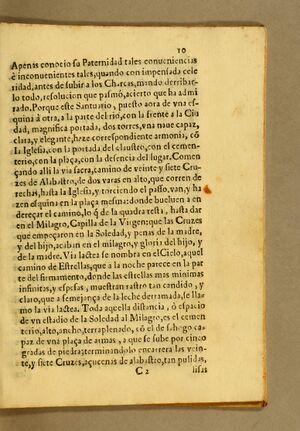 10
Apenas conocio su Paternidad tales conueniencias
è inconuenientes tales, quando con impensada cele
ridad, antes de subir a los Charcas, mandò derribar-
lo todo, resolucion que pasmò, acierto que ha admi
rado. Porque este Santuario, puesto aora de vna es-
quina à otra, a la parte del rio, con la frente a la Ciu
dad, magnifica portada, dos torres, vna naue capaz,
clara, y elegante, haze correspondiente armonia, cõ
la Iglesia, con la portada del claustro, con el cemen-
terio, con la plaça, con la defensa del lugar. Comen
çando alli la via sacra, camino de veinte y siete Cru
zes de Alabastro, de dos varas en alto, que corren de
rechas, hasta la Iglesia, y torciendo el passo, van, y ha
zen esquina en la plaça mesma donde bueluen a en
dereçar el camino, lo q̃ de la quadra resta, hasta dar
en el Milagro, Capilla de la Virgen: que las Cruzes
que empeçaron en la Soledad, y penas de la madre,
y del hijo, acaban en el milagro, y gloria del hijo, y
de la madre. Via lactea se nombra en el Cielo, aquel
camino de Estrellas, que a la noche parece en la par
te del firmamento, donde las estrellas mas minimas
infinitas, y espesas, muestran rastro tan candido, y
claro, que a semejança de la leche derramada, se lla-
mo la via lactea. Toda aquella distancia, ò espacio
de vn estadio de la Soledad al Milagro, es el cemen
terio, alto, ancho, terraplenado, cõ el desahogo ca-
paz de vna plaça de armas, a que se sube por cinco
gradas de piedra; terminandolo en carrera las vein-
te, y siete Cruzes, açucenas de alabastro, tan pulidas,
C 2 lisas